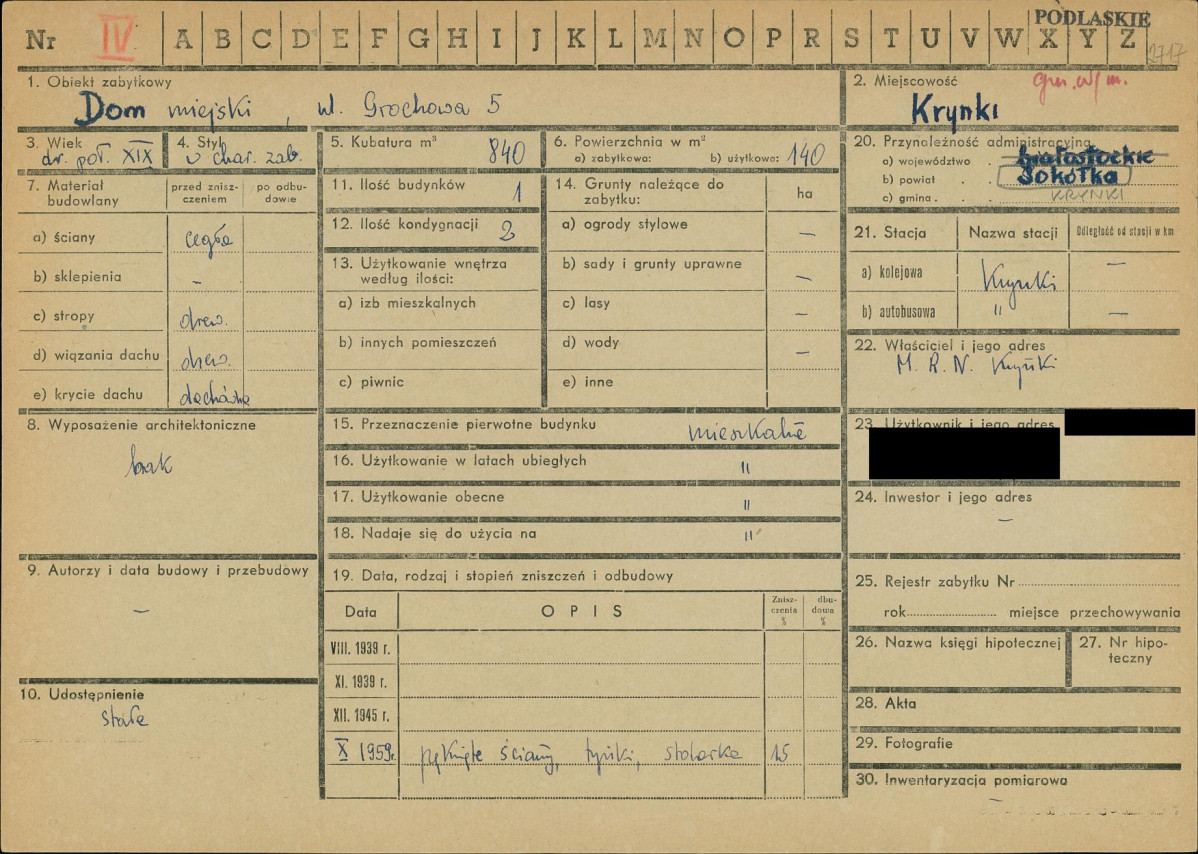 PODLASKIE
Nr IV A B C D E F G H I J K L M N O P R S T U V W X Y Z
2717
1. Obiekt zabytkowy
Dom miejski, ul. Grochowa 5
2. Miejscowość
Krynki
3. Wiek
dr. poł. XIX
4. Styl
o char. zab.
5. Kubatura m³ 840
6. Powierzchnia w m²
a) zabytkowa: b) użytkowa: 140
20. Przynależność administracyjna
a) województwo . Białostockie
b) powiat . . Sokółka
c) gmina . . KRYNKI
7. Materiał budowlany
przed zniszczeniem
po odbudowie
a) ściany cegła
b) sklepienia –
c) stropy drew.
d) wiązania dachu drew.
e) krycie dachu dachówka
11. Ilość budynków 1
12. Ilość kondygnacji 2
13. Użytkowanie wnętrza
według ilości:
a) izb mieszkalnych
b) innych pomieszczeń
c) piwnic
14. Grunty należące do
zabytku: ha
a) ogrody stylowe –
b) sady i grunty uprawne –
c) lasy –
d) wody –
e) inne
21. Stacja Nazwa stacji Odległość od stacji w km
a) kolejowa Krynki –
b) autobusowa " –
22. Właściciel i jego adres
M. R. N. Krynki
8. Wyposażenie architektoniczne
brak
15. Przeznaczenie pierwotne budynku mieszkalne
16. Użytkowanie w latach ubiegłych "
17. Użytkowanie obecne "
18. Nadaje się do użycia na "
23. Użytkownik i jego adres
24. Inwestor i jego adres
–
9. Autorzy i data budowy i przebudowy
–
19. Data, rodzaj i stopień zniszczeń i odbudowy
Data OPIS Zniszczenia % dbudowa %
VIII. 1939 r.
XI. 1939 r.
XII. 1945 r.
X 1959 r. pęknięte ściany, tynki, stolarka 15
25. Rejestr zabytku Nr
rok miejsce przechowywania
26. Nazwa księgi hipotecznej
27. Nr hipoteczny
10. Udostępnienie
stałe
28. Akta
29. Fotografie
30. Inwentaryzacja pomiarowa
–